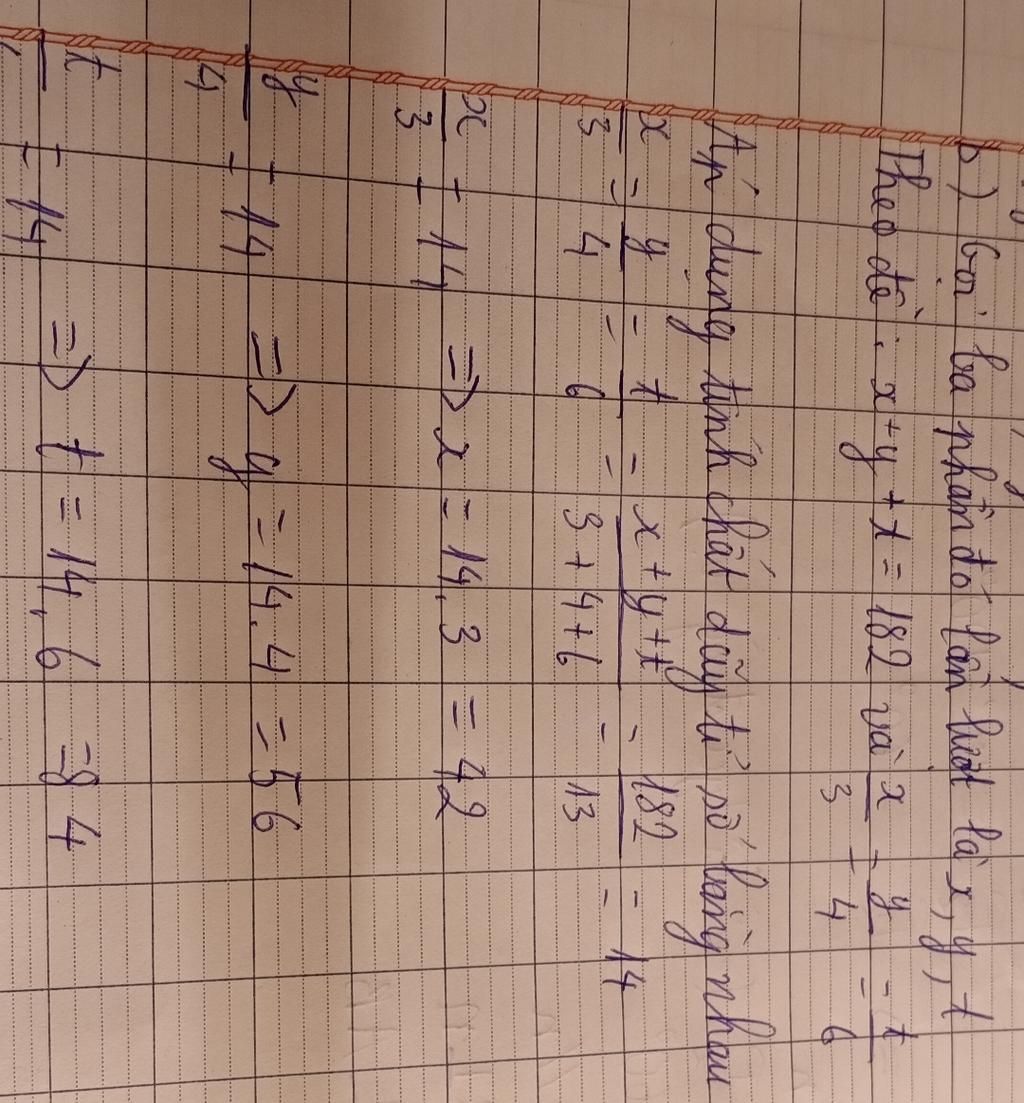 b) Gọi ba phần đó lần lượt là x, y, t
Theo đề: x + y + t = 182 và x/3 = y/4 = t/6
Áp dụng tính chất dãy tỉ số bằng nhau
x/3 = y/4 = t/6 = (x + y + t)/(3 + 4 + 6) = 182/13 = 14
x/3 = 14 => x = 14.3 = 42
y/4 = 14 => y = 14.4 = 56
t = 14 => t = 14.6 = 84